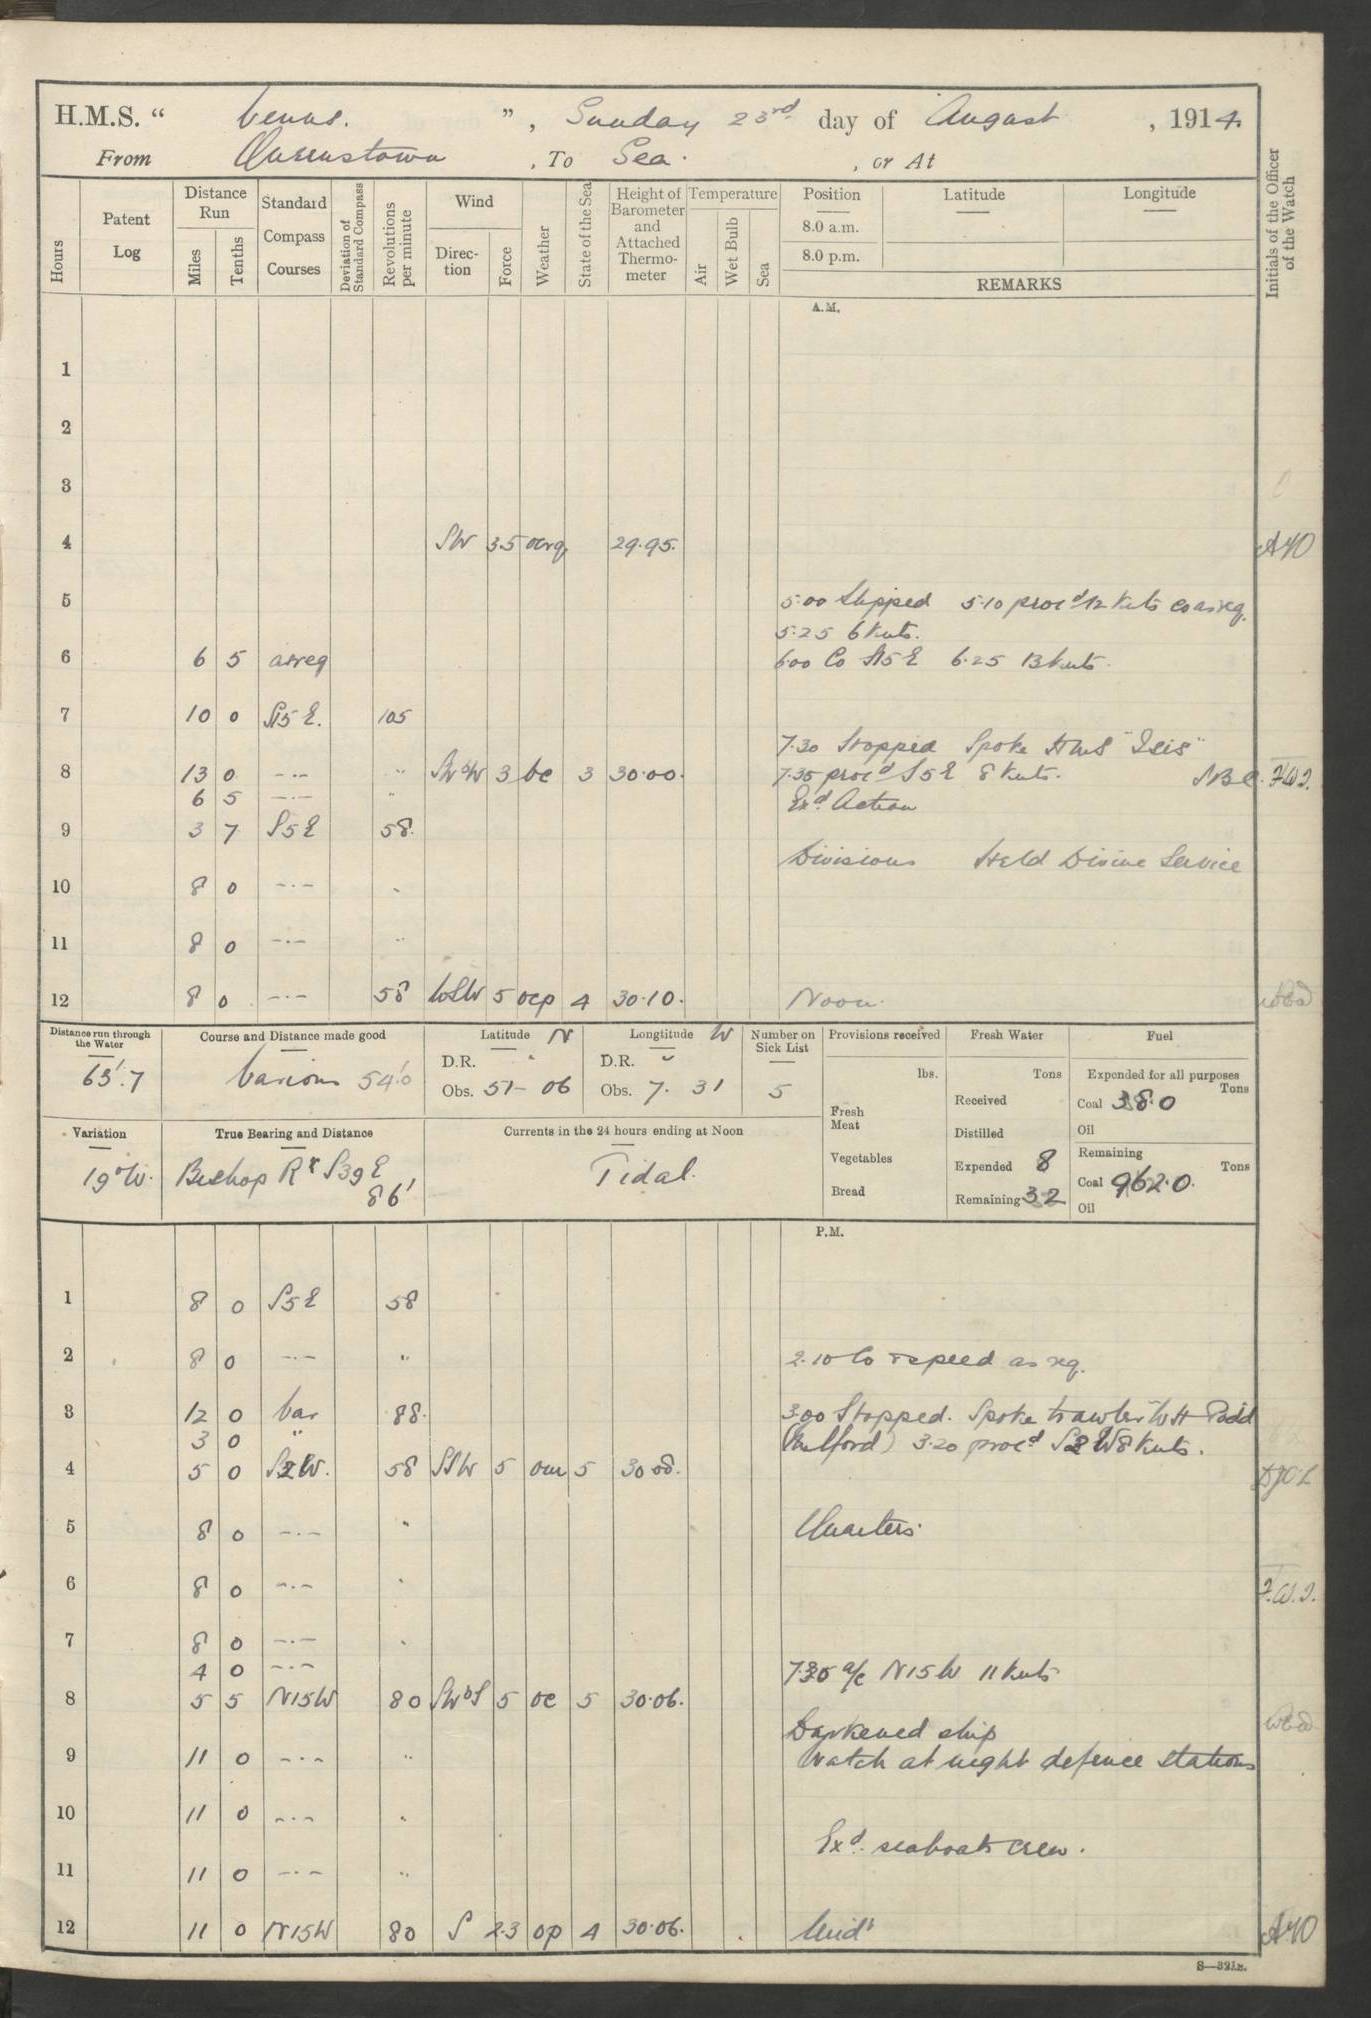 H.M.S. “ Venus. ” , Sunday 23rd day of August , 1914.
From Queenstown , To Sea. , or At
Hours
Patent Log
Distance Run
Miles
Tenths
Standard Compass Courses
Deviation of Standard Compass
Revolutions per minute
Wind
Direction
Force
Weather
State of the Sea
Height of Barometer and Attached Thermometer
Temperature
Air
Wet Bulb
Sea
Position
8.0 a.m.
8.0 p.m.
Latitude
Longitude
REMARKS
Initials of the Officer of the Watch
A.M.
1
2
3
4 SW 3.5 ocrq 29.95.
5 5.00 Slipped 5.10 procd 12 Knts co as req.
5.25 6 knts.
6 6 5 as req 6.00 Co S15E 6.25 13 knts.
7 10 0 S15E. 105
7.30 Stopped Spoke HMS "Isis"
8 13 0 —.— " SWbW 3 bc 3 30.00. 7.35 procd S5E 8 knts. SBC. FWI.
6 5 —.— " Exd Action
9 3 7 S5E 58.
Divisions Held Divine Service
10 8 0 —.— "
11 8 0 —.— "
12 8 0 —.— 58 WSW 5 ocp 4 30.10. Noon.
Distance run through the Water
63'.7
Course and Distance made good
Various 54'.0
Latitude N
D.R. "
Obs. 51 - 06
Longtitude W
D.R. "
Obs. 7. 31
Number on Sick List
5
Provisions received
lbs.
Fresh Meat
Vegetables
Bread
Fresh Water
Tons
Received
Distilled
Expended 8
Remaining 32
Fuel
Expended for all purposes
Tons
Coal 38.0
Oil
Remaining
Tons
Coal 962.0.
Oil
Variation
19°W.
True Bearing and Distance
Bishop Rk S39E
86'
Currents in the 24 hours ending at Noon
Tidal.
P.M.
1 8 0 S5E 58
2 8 0 —.— " 2.10 Co & speed as req.
3 12 0 Var 88. 3.00 Stopped. Spoke trawler W H Podd
3 0 " (Milford) 3.20 procd S2W 8 knts.
4 5 0 S2W. 58 SSW 5 om 5 30.08.
5 8 0 —.— " Quarters.
6 8 0 —.— " F.W.I.
7 8 0 —.— "
4 0 —.— 7.30 a/c N15W 11 knts
8 5 5 N15W 80 SWbS 5 oc 5 30.06.
Darkened ship
9 11 0 —.— " Watch at night defence stations
10 11 0 —.— "
Exd. seaboats crew.
11 11 0 —.— "
12 11 0 N15W 80 S 2.3 op 4 30.06. Midt
S—321B.